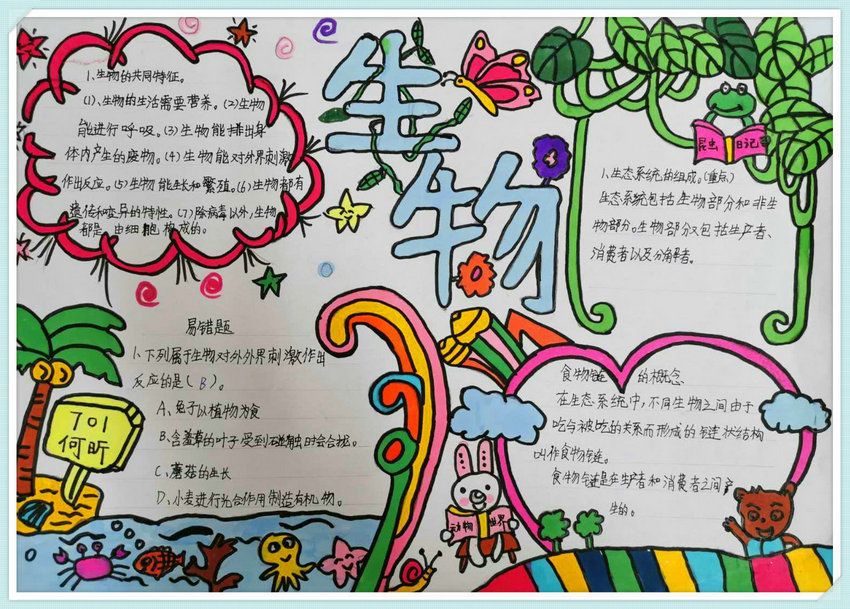 生物
1、生物的共同特征。
(1)、生物的生活需要营养。(2)生物
能进行呼吸。(3)生物能排出身
体内产生的废物。(4)生物能对外界刺激
作出反应。(5)生物能生长和繁殖。(6)生物都有
遗传和变异的特性。(7)除病毒以外,生物
都是由细胞构成的。
昆虫日记
1、生态系统的组成。(重点)
生态系统包括生物部分和非生
物部分。生物部分又包括生产者、
消费者以及分解者。
易错题
1、下列属于生物对外外界刺激作出
反应的是(B)。
A、兔子以植物为食
B、含羞草的叶子受到碰触时会合拢。
C、蘑菇的生长
D、小麦进行光合作用制造有机物。
701
何昕
食物链的概念
在生态系统中,不同生物之间由于
吃与被吃的关系而形成的链状结构
叫作食物链。
食物链是在生产者和消费者之间产
生的。
动物世界